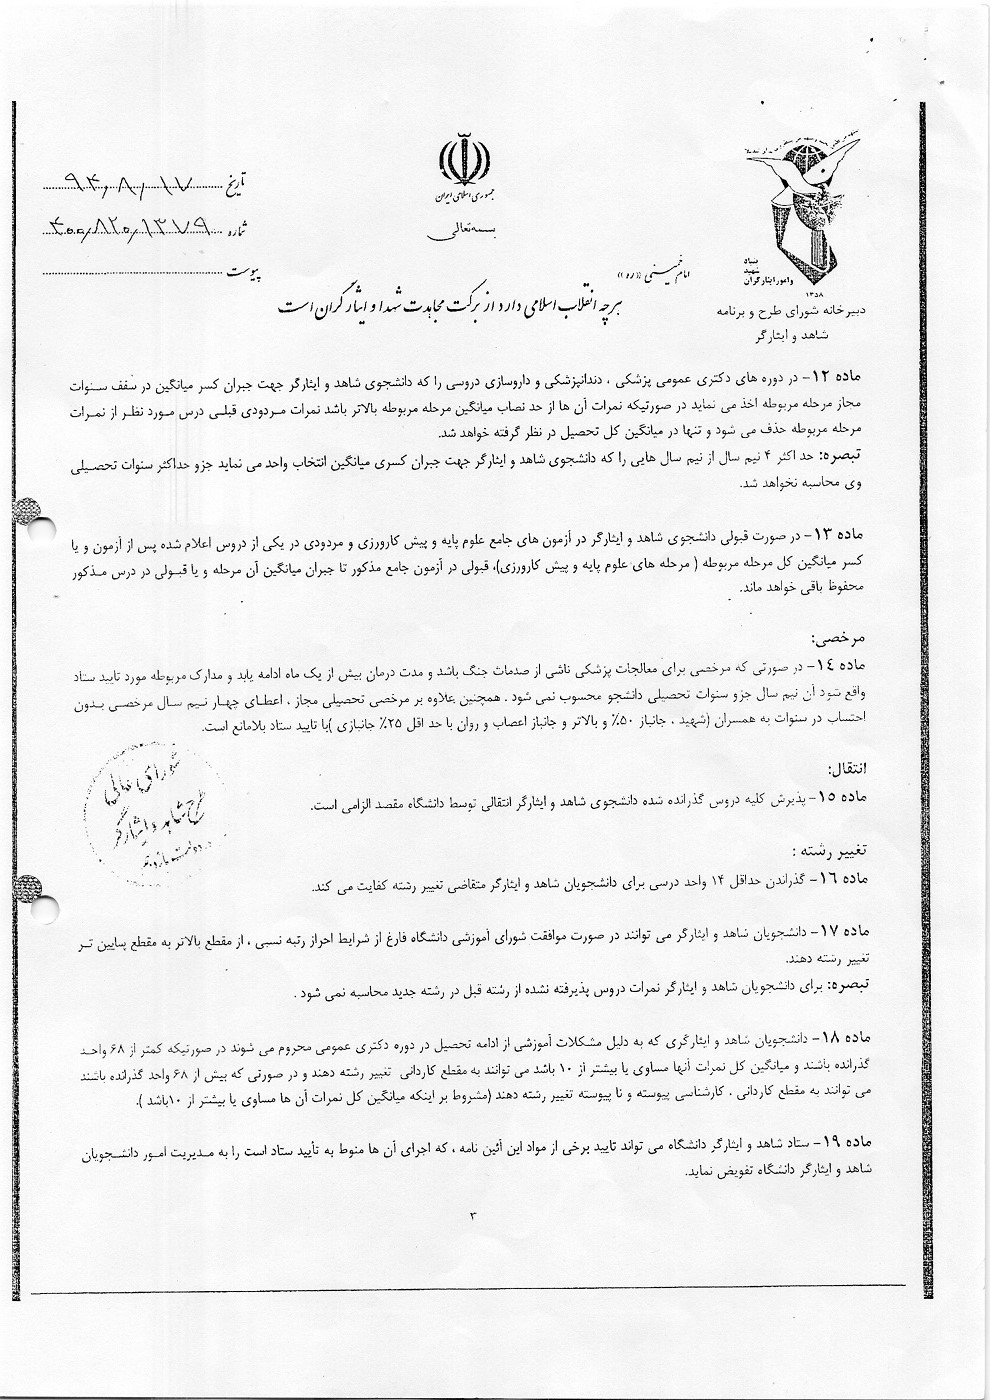 جمهوری اسلامی ایران
بسمه تعالی
تاریخ ۹۴/۸/۱۷
شماره ۴۰۰/۸۲۰/۱۳۷۹
پیوست
بنیاد
شهید
و امور ایثارگران
۱۳۵۸
دبیرخانه شورای طرح و برنامه
شاهد و ایثارگر
امام خمینی «ره»
هرچه انقلاب اسلامی دارد از برکت مجاهدت شهدا و ایثارگران است
ماده ۱۲- در دوره های دکتری عمومی پزشکی ، دندانپزشکی و داروسازی دروسی را که دانشجوی شاهد و ایثارگر جهت جبران کسر میانگین در سقف سنوات
مجاز مرحله مربوطه اخذ می نماید در صورتیکه نمرات آن ها از حد نصاب میانگین مرحله مربوطه بالاتر باشد نمرات مردودی قبلی درس مورد نظر از نمرات
مرحله مربوطه حذف می شود و تنها در میانگین کل تحصیل در نظر گرفته خواهد شد.
تبصره: حد اکثر ۴ نیم سال از نیم سال هایی را که دانشجوی شاهد و ایثارگر جهت جبران کسری میانگین انتخاب واحد می نماید جزو حداکثر سنوات تحصیلی
وی محاسبه نخواهد شد.
ماده ۱۳- در صورت قبولی دانشجوی شاهد و ایثارگر در آزمون های جامع علوم پایه و پیش کارورزی و مردودی در یکی از دروس اعلام شده پس از آزمون و یا
کسر میانگین کل مرحله مربوطه ( مرحله های علوم پایه و پیش کارورزی)، قبولی در آزمون جامع مذکور تا جبران میانگین آن مرحله و یا قبولی در درس مذکور
محفوظ باقی خواهد ماند.
مرخصی:
ماده ۱٤- در صورتی که مرخصی برای معالجات پزشکی ناشی از صدمات جنگ باشد و مدت درمان بیش از یک ماه ادامه یابد و مدارک مربوطه مورد تایید ستاد
واقع شود آن نیم سال جزو سنوات تحصیلی دانشجو محسوب نمی شود . همچنین علاوه بر مرخصی تحصیلی مجاز ، اعطای چهار نیم سال مرخصی بدون
احتساب در سنوات به همسران (شهید ، جانباز ۵۰٪ و بالاتر و جانباز اعصاب و روان با حد اقل ۲۵٪ جانبازی )با تایید ستاد بلامانع است.
شورای عالی
طرح شاهد و ایثارگر
انتقال:
ماده ۱۵- پذیرش کلیه دروس گذرانده شده دانشجوی شاهد و ایثارگر انتقالی توسط دانشگاه مقصد الزامی است.
تغییر رشته :
ماده ۱۶- گذراندن حداقل ۱۴ واحد درسی برای دانشجویان شاهد و ایثارگر متقاضی تغییر رشته کفایت می کند.
ماده ۱۷- دانشجویان شاهد و ایثارگر می توانند در صورت موافقت شورای آموزشی دانشگاه فارغ از شرایط احراز رتبه نسبی ، از مقطع بالاتر به مقطع پایین تر
تغییر رشته دهند.
تبصره: برای دانشجویان شاهد و ایثارگر نمرات دروس پذیرفته نشده از رشته قبل در رشته جدید محاسبه نمی شود .
ماده ۱۸- دانشجویان شاهد و ایثارگری که به دلیل مشکلات آموزشی از ادامه تحصیل در دوره دکتری عمومی محروم می شوند در صورتیکه کمتر از ۶۸ واحد
گذرانده باشند و میانگین کل نمرات آنها مساوی یا بیشتر از ۱۰ باشد می توانند به مقطع کاردانی تغییر رشته دهند و در صورتی که بیش از ۶۸ واحد گذرانده باشند
می توانند به مقطع کاردانی ، کارشناسی پیوسته و نا پیوسته تغییر رشته دهند (مشروط بر اینکه میانگین کل نمرات آن ها مساوی یا بیشتر از ۱۰باشد ).
ماده ۱۹- ستاد شاهد و ایثارگر دانشگاه می تواند تایید برخی از مواد این آئین نامه ، که اجرای آن ها منوط به تأیید ستاد است را به مدیریت امور دانشجویان
شاهد و ایثارگر دانشگاه تفویض نماید.
۳